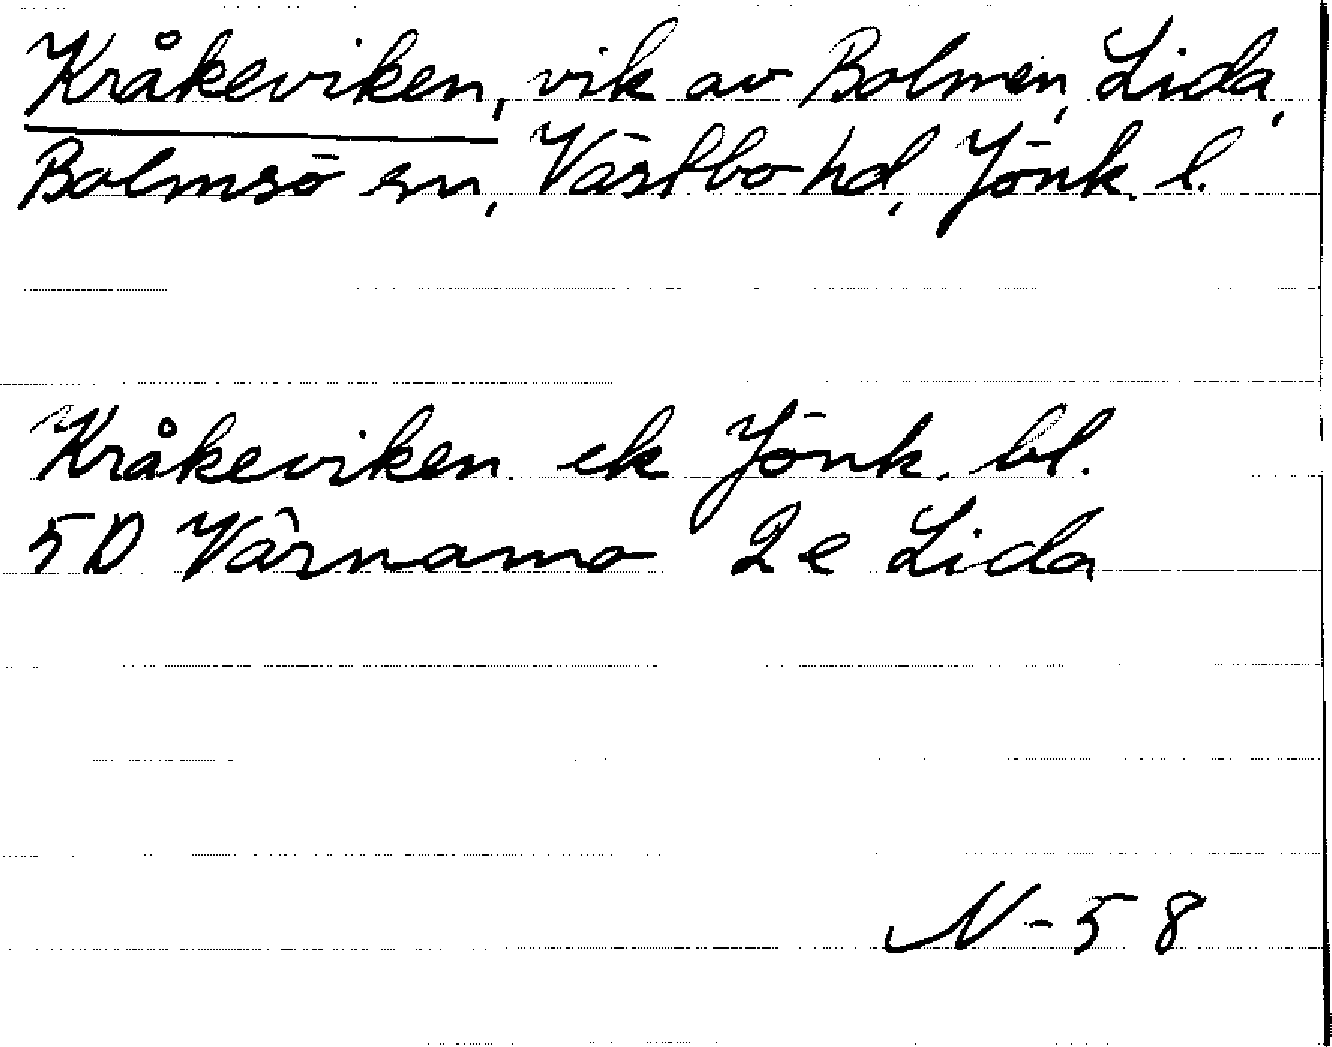 Kråkeviken, vik av Bolmen, Lida,
Bolmsö sn, Västbo hd, Jönk. l.
Kråkeviken ek Jönk. bl.
5D Värnamo 2e Lida
N-58